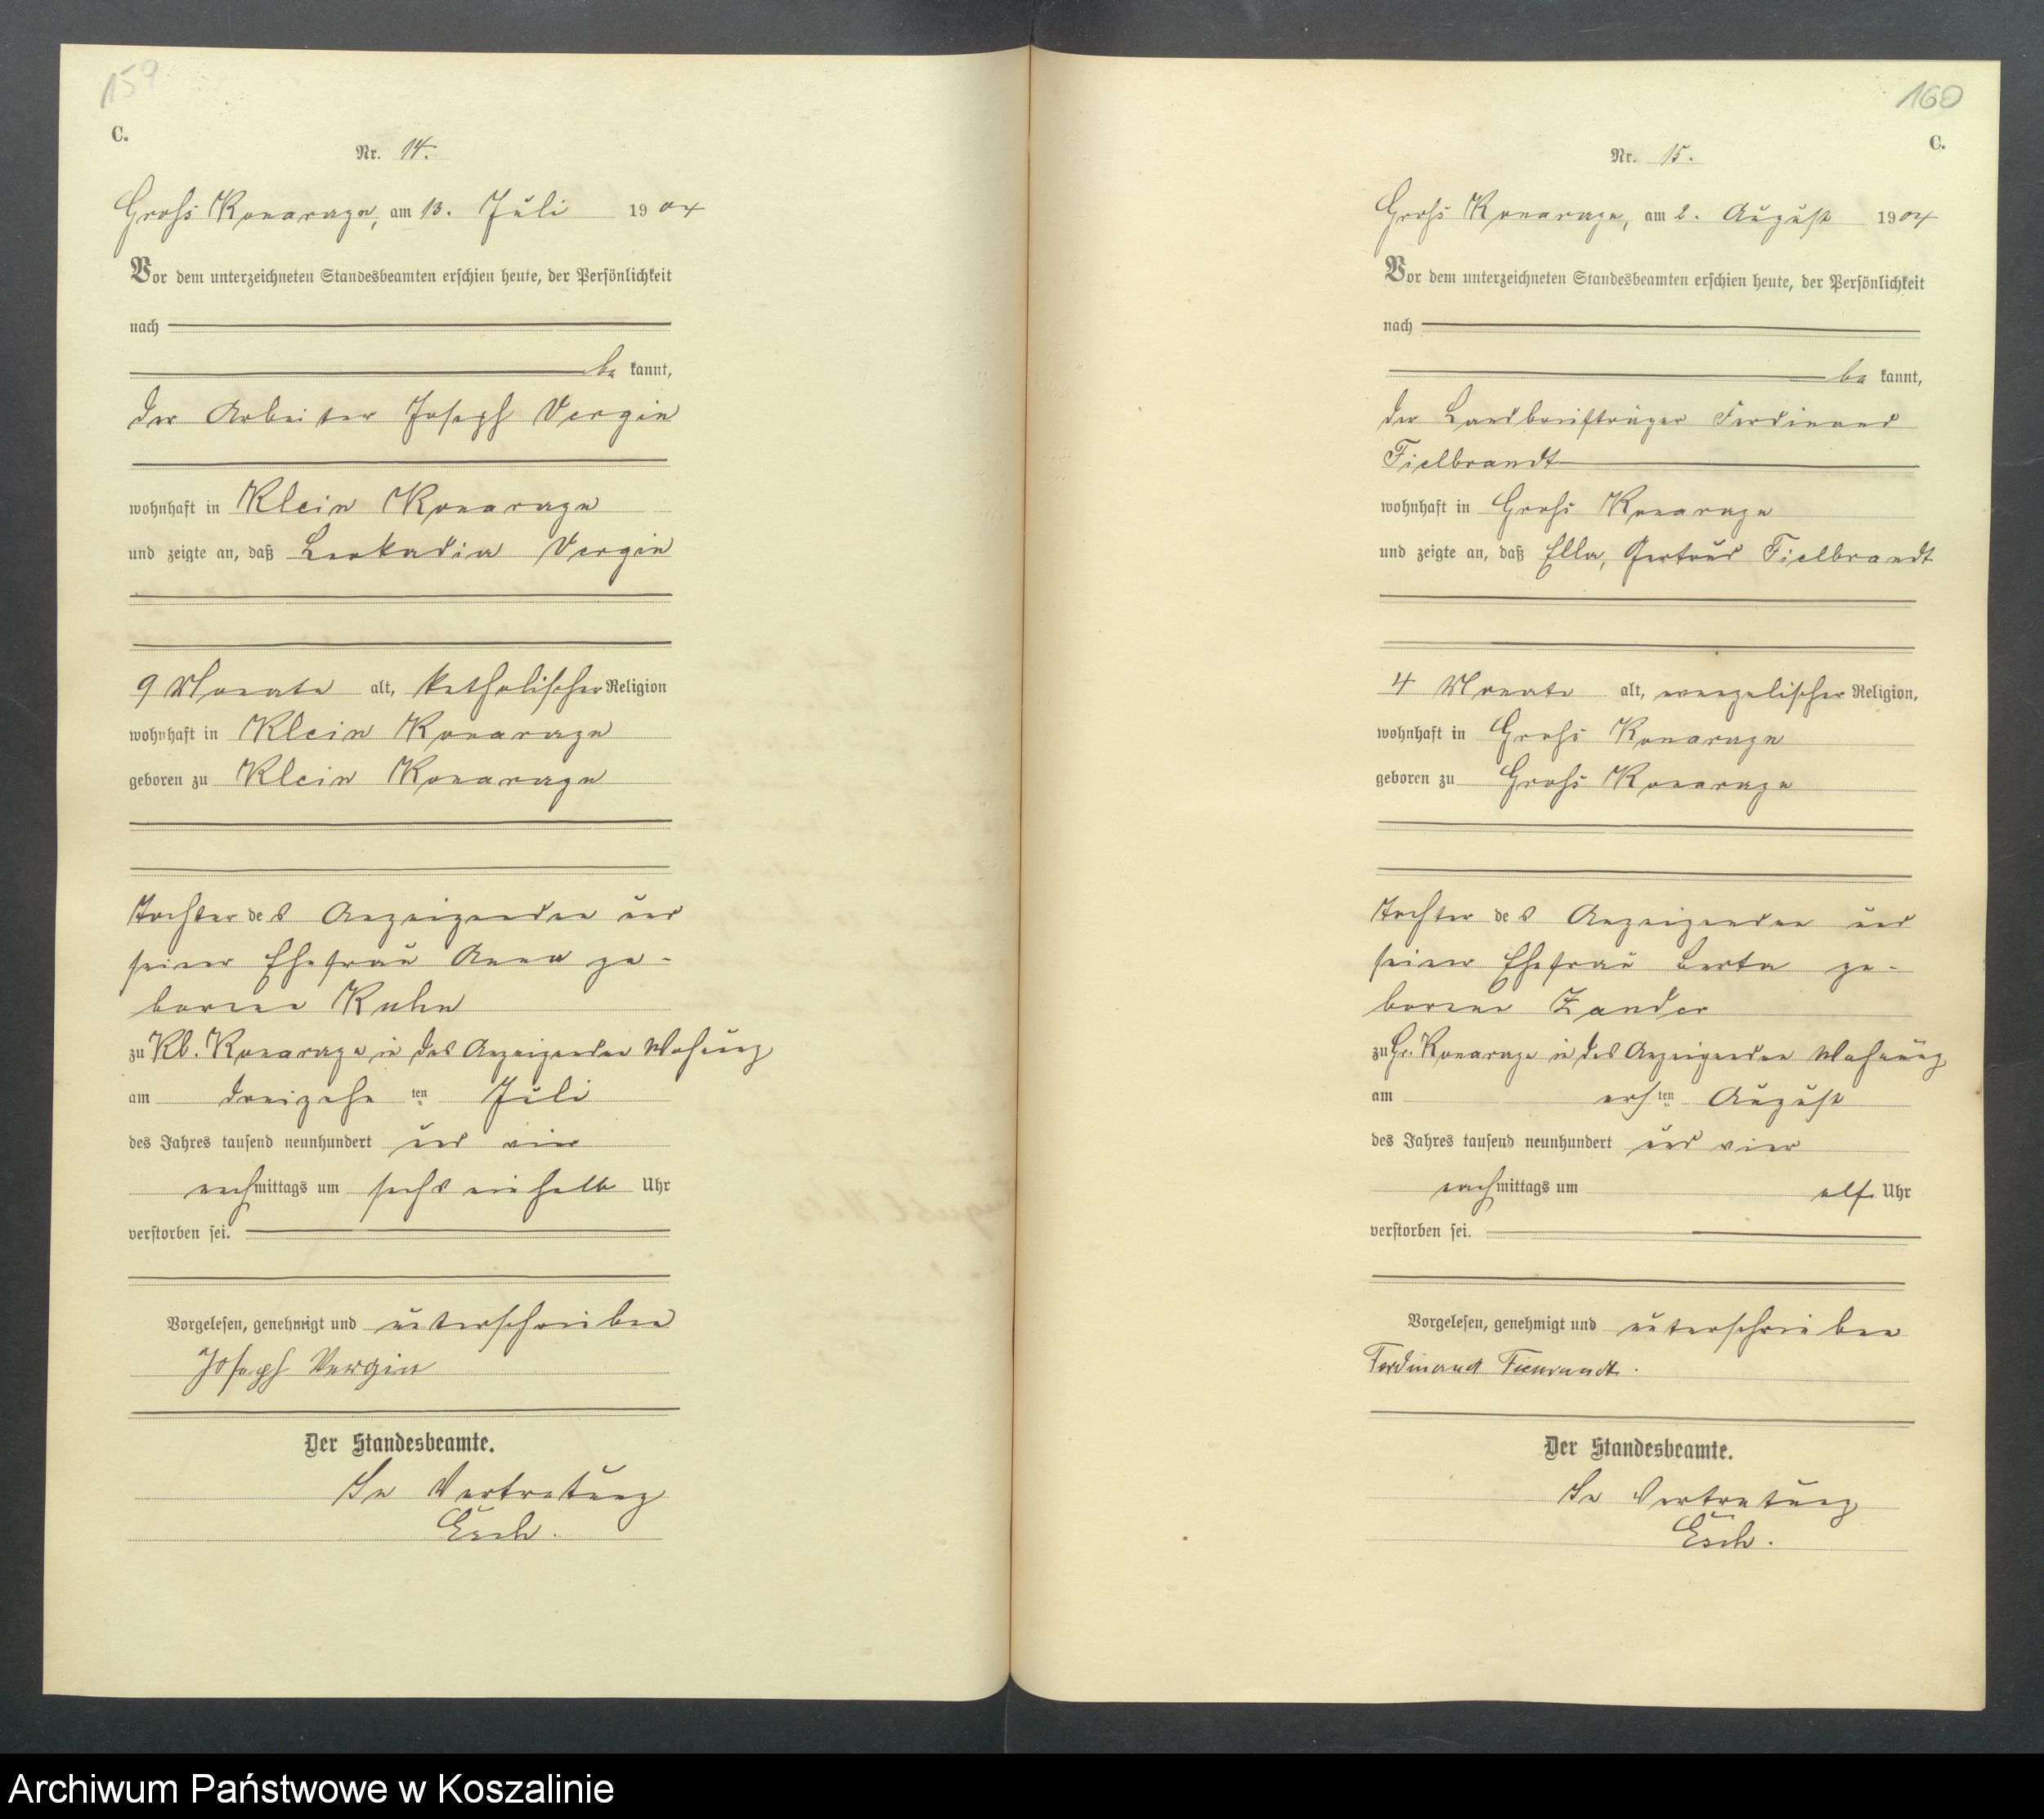 159
C.
Nr. 14.
Groß Konarzyn, am 13. Juli 1904
Vor dem unterzeichneten Standesbeamten erschien heute, der Persönlichkeit
nach
be kannt,
der Arbeiter Joseph Vergin
wohnhaft in Klein Konarzyn
und zeigte an, daß Leokadia Vergin
9 Monate alt, katholischer Religion
wohnhaft in Klein Konarzyn
geboren zu Klein Konarzyn
Tochter des Anzeigenden und
seiner Ehefrau Anna ge-
borene Kuhn
zu Kl. Konarzyn in des Anzeigenden Wohnung
am dreizehn ten Juli
des Jahres tausend neunhundert und vier
nachmittags um sechs einhalb Uhr
verstorben sei.
Vorgelesen, genehmigt und unterschrieben
Joseph Vergin
Der Standesbeamte.
In Vertretung
Esch.
160
C.
Nr. 15.
Groß Konarzyn, am 2. August 1904
Vor dem unterzeichneten Standesbeamten erschien heute, der Persönlichkeit
nach
be kannt,
der Landbriefträger Ferdinand
Fielbrandt
wohnhaft in Groß Konarzyn
und zeigte an, daß Ella, Gertrud Fielbrandt
4 Monate alt, evangelischer Religion,
wohnhaft in Groß Konarzyn
geboren zu Groß Konarzyn
Tochter des Anzeigenden und
seiner Ehefrau Berta ge-
borene Zander
zu Gr. Konarzyn in des Anzeigenden Wohnung
am ersten August
des Jahres tausend neunhundert und vier
nachmittags um elf Uhr
verstorben sei.
Vorgelesen, genehmigt und unterschrieben
Ferdinand
Der Standesbeamte.
In Vertretung
Esch.
Archiwum Państwowe w Koszalinie